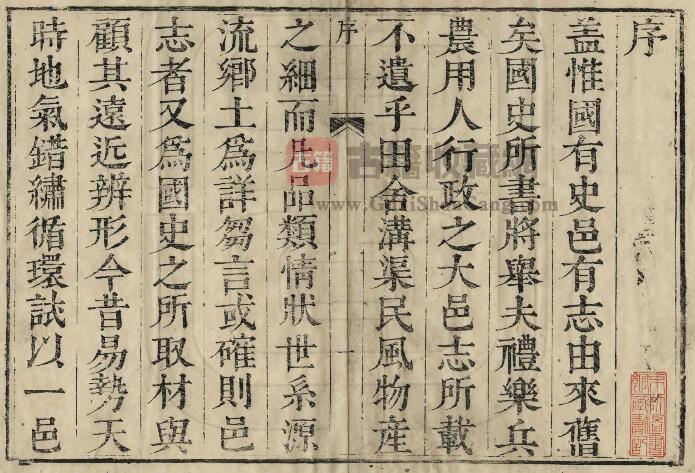 序
蓋惟國有史邑有志由來舊
矣國史所書將舉夫禮樂兵
農用人行政之大邑志所載
不遺乎田舍溝渠民風物産
序
一
之細而凡品類情狀世系源
流鄉土爲詳芻言或確則邑
志者又爲國史之所取材與
顧其遠近辨形今昔易勢天
時地氣錯繡循環試以一邑
古籍
古籍收藏網
www.GuJiShouCang.com